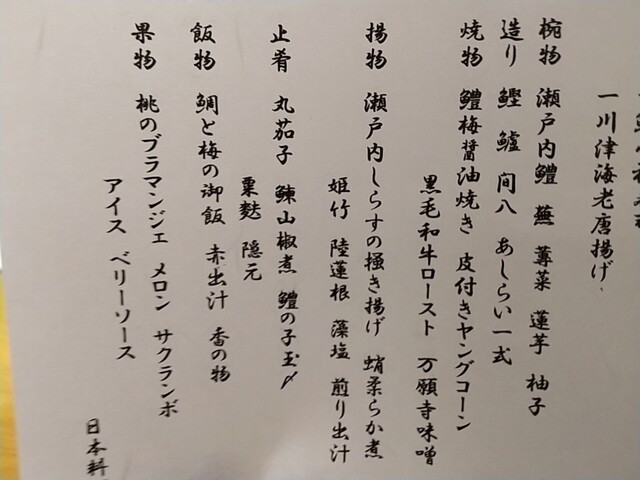 一川津海老唐揚げ
椀物 瀬戸内鱧 蕪 蓴菜 蓮芋 柚子
造り 鰹 鱸 間八 あしらい一式
焼物 鱧梅醤油焼き 皮付きヤングコーン
黒毛和牛ロースト 万願寺味噌
揚物 瀬戸内しらすの掻き揚げ 蛸柔らか煮
姫竹 陸蓮根 藻塩 煎り出汁
止肴 丸茄子 鰊山椒煮 鱧の子玉〆
粟麩 隠元
飯物 鯛と梅の御飯 赤出汁 香の物
果物 桃のブラマンジェ メロン サクランボ
アイス ベリーソース
日本料